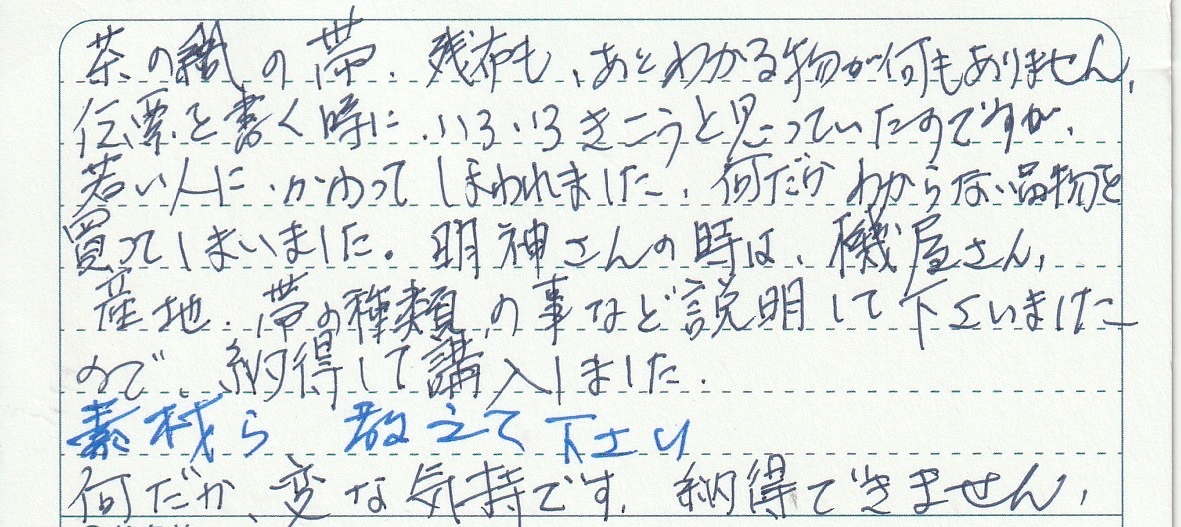 茶の の帯、残布も、あとわかる物が何もありません、
伝票を書く時に、いろいろきこうと思っていたすですが、
若い人に、かわってしまわれました、何だかわからない品物を
買ってしまいました。明神さんの時は、機屋さん、
産地、帯の種類の事など説明して下さいました
ので、納得して講入しました。
素材ら 教えて下さい
何だか、変な気持です、納得できません、